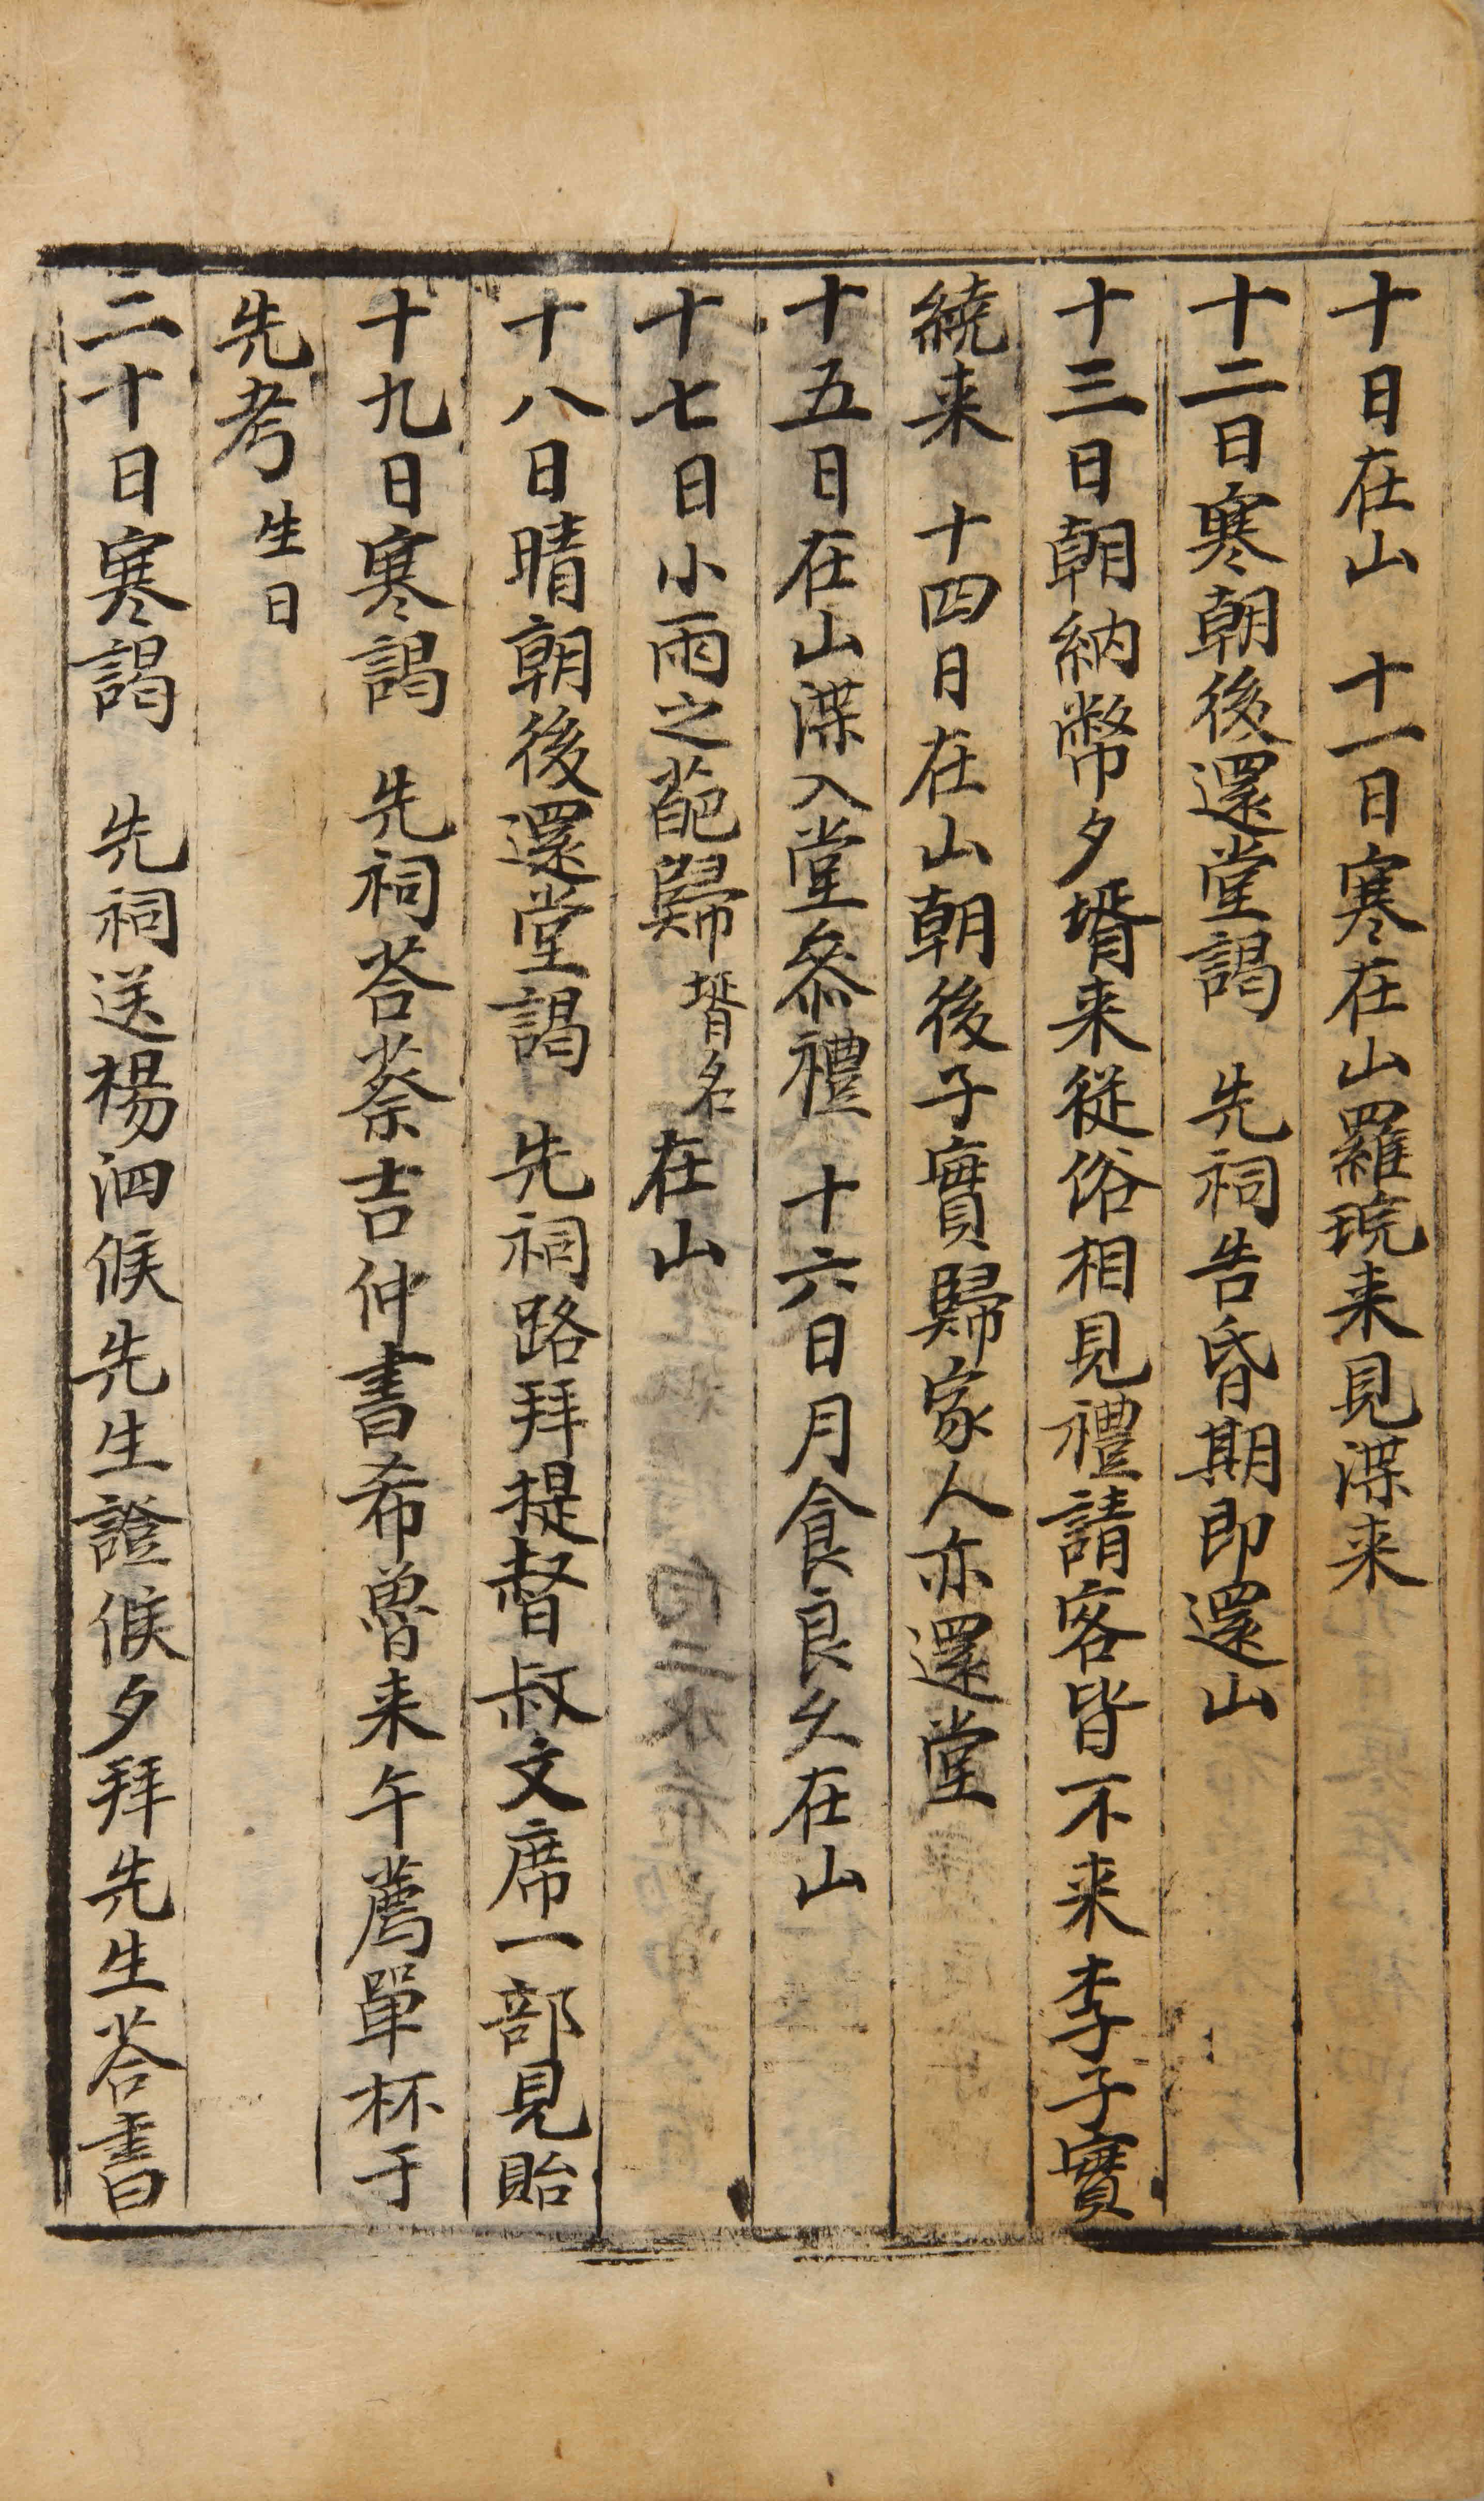 十日在山　十一日寒在山羅琓来見渫来
十二日寒朝後還堂謁　先祠告昏期即還山
十三日朝納幣夕壻来從俗相見禮請客皆不来李子實
繞来　十四日在山朝後子實歸家人亦還堂
十五日在山渫入堂叅禮　十六日月食良久在山
十七日小雨之葩歸壻名在山
十八日晴朝後還堂謁　先祠路拜提督叔文席一部見貽
十九日寒謁　先祠荅蔡吉仲書希魯来午薦單杯于
先考生日
二十日寒謁　先祠送楊泗候先生證候夕拜先生荅書